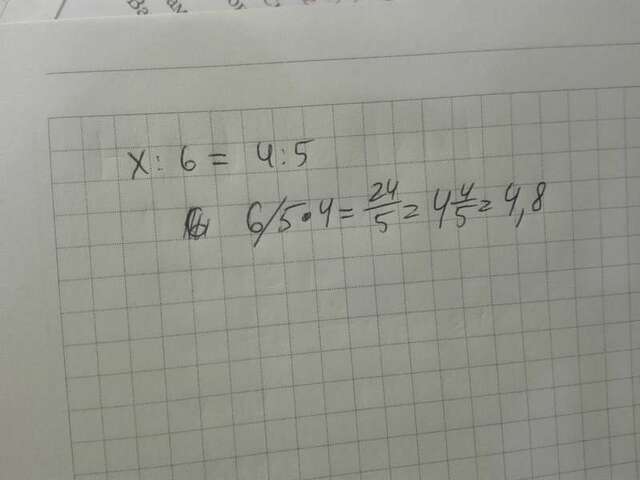 x: 6 = 4:5
6/5•4 = 24/5 = 4 4/5 = 4,8